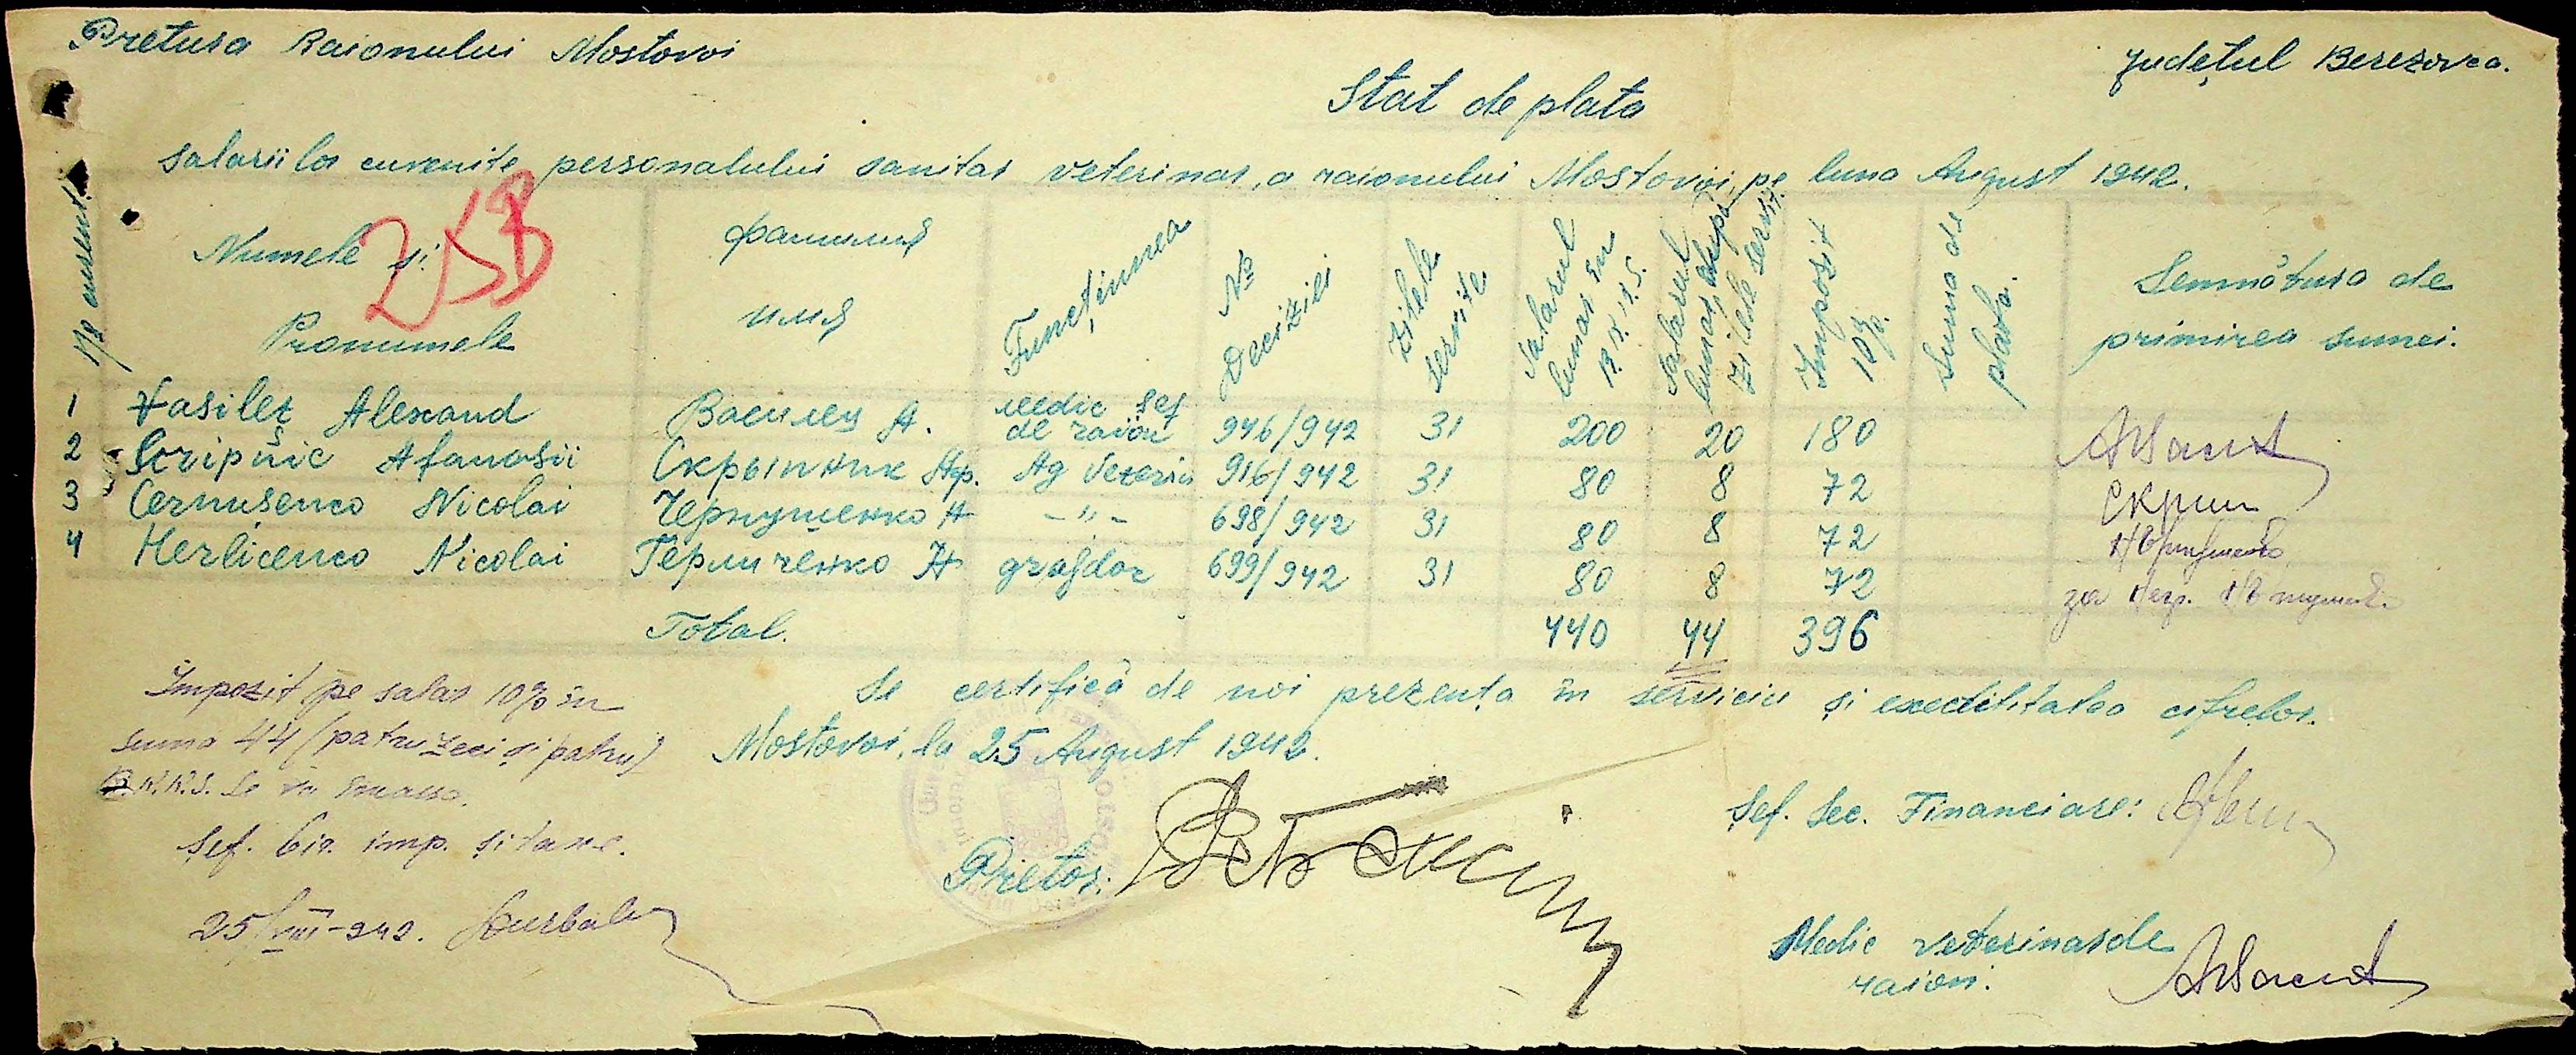 Pretura Raionului Mostovoi
Județul Berezovca.
Stat de plata
salariilor cuvenite personalului sanitar veterinar, a raionului Mostovoi, pe luna August 1942.
No curent.
Numele si Pronumele
фамилия имя
Funcținnea
No Decizili
Zilele servite
Salarul lunar în R.K.K.S.
Salarul lunar dupa zilele servit.
Impozit 10%.
Suma de plata.
Semnătura de primirea sumei.
25B
1 Vasileț Alexand Василец А. medic șef de raion 946/942 31 200 20 180
2 Scripnic Afanasii Скрыпник Аф. Ag Veterin 916/942 31 80 8 72 Скрип
3 Cernusenco Nicolai Чернушенко Н -"- 698/942 31 80 8 72
4 Herlicenco Nicolai Герличенко Н grajdar 699/942 31 80 8 72
Total. 440 44 396
Se certifică de noi prezența în serviciu și exeditatea cifrelor.
Mostovoi, la 25 August 1942.
Impozit pe salar 10% în
suma 44 (patru zeci si patru)
R.K.K.S. se va încasa.
Șef. bir. imp. și taxe.
25/VIII-942.
Pretor:
Șef. Sec. Financiare:
Medic veterinar de
raion.